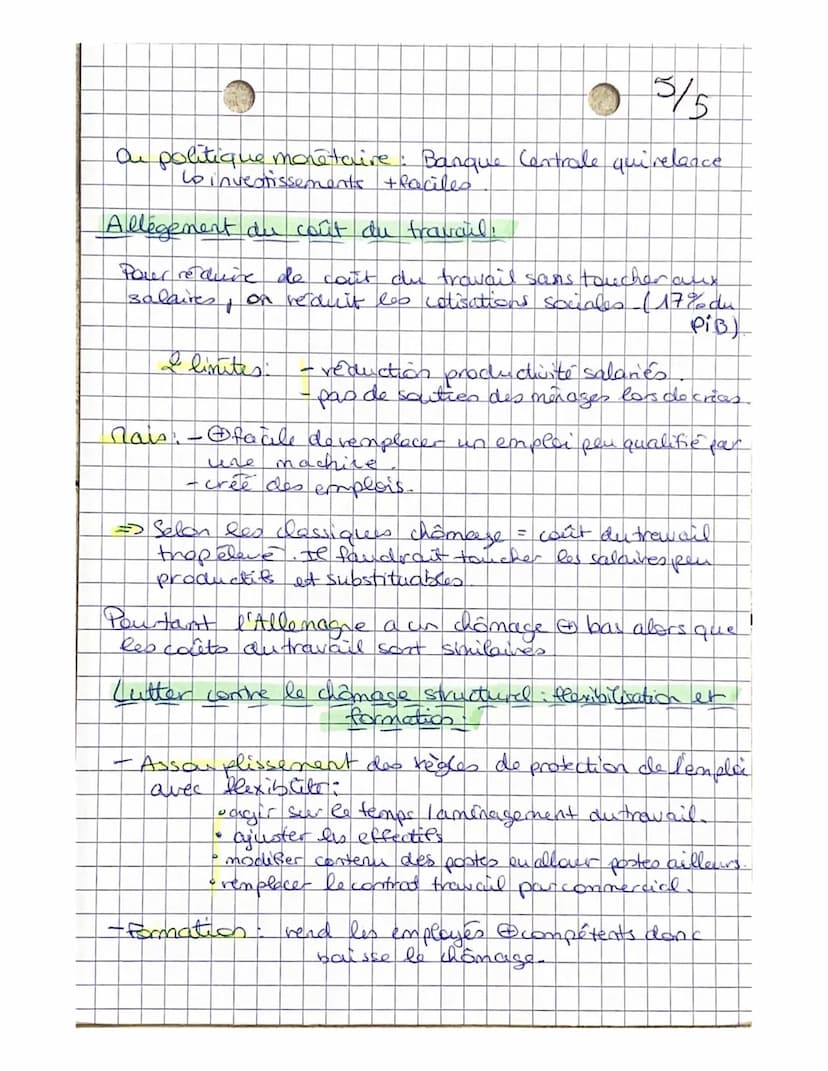 5/5
Ou politique monétaire : Banque Centrale qui relance
↳ investissements + faciles.
Allègement du coût du travail :
Pour réduire de coût du travail sans toucher aux
salaires, on réduit les cotisations sociales (17% du
PiB)
2 limites : - réduction productivité salariés.
- pas de soutien des ménages lors de crise.
Mais : - ⊕ facile de remplacer un emploi peu qualifié par
une machine.
- créé des emplois.
=> Selon les classiques chômage = coût du travail
trop élevé. Il faudrait toucher les salaires peu
productifs et substituables.
Pourtant l'Allemagne a un chômage ⊕ bas alors que
les coûts du travail sont similaires
Lutter contre le chômage structurel : flexibilisation et
formation :
- Assouplissement des règles de protection de l'emploi
avec flexibilité :
• agir sur le temps / aménagement du travail.
• ajuster les effectifs
• modifier contenu des postes ou allouer postes ailleurs.
• remplacer le contrat travail par commercial.
- Formation : rend les employés ⊕ compétents donc
baisse le chômage.